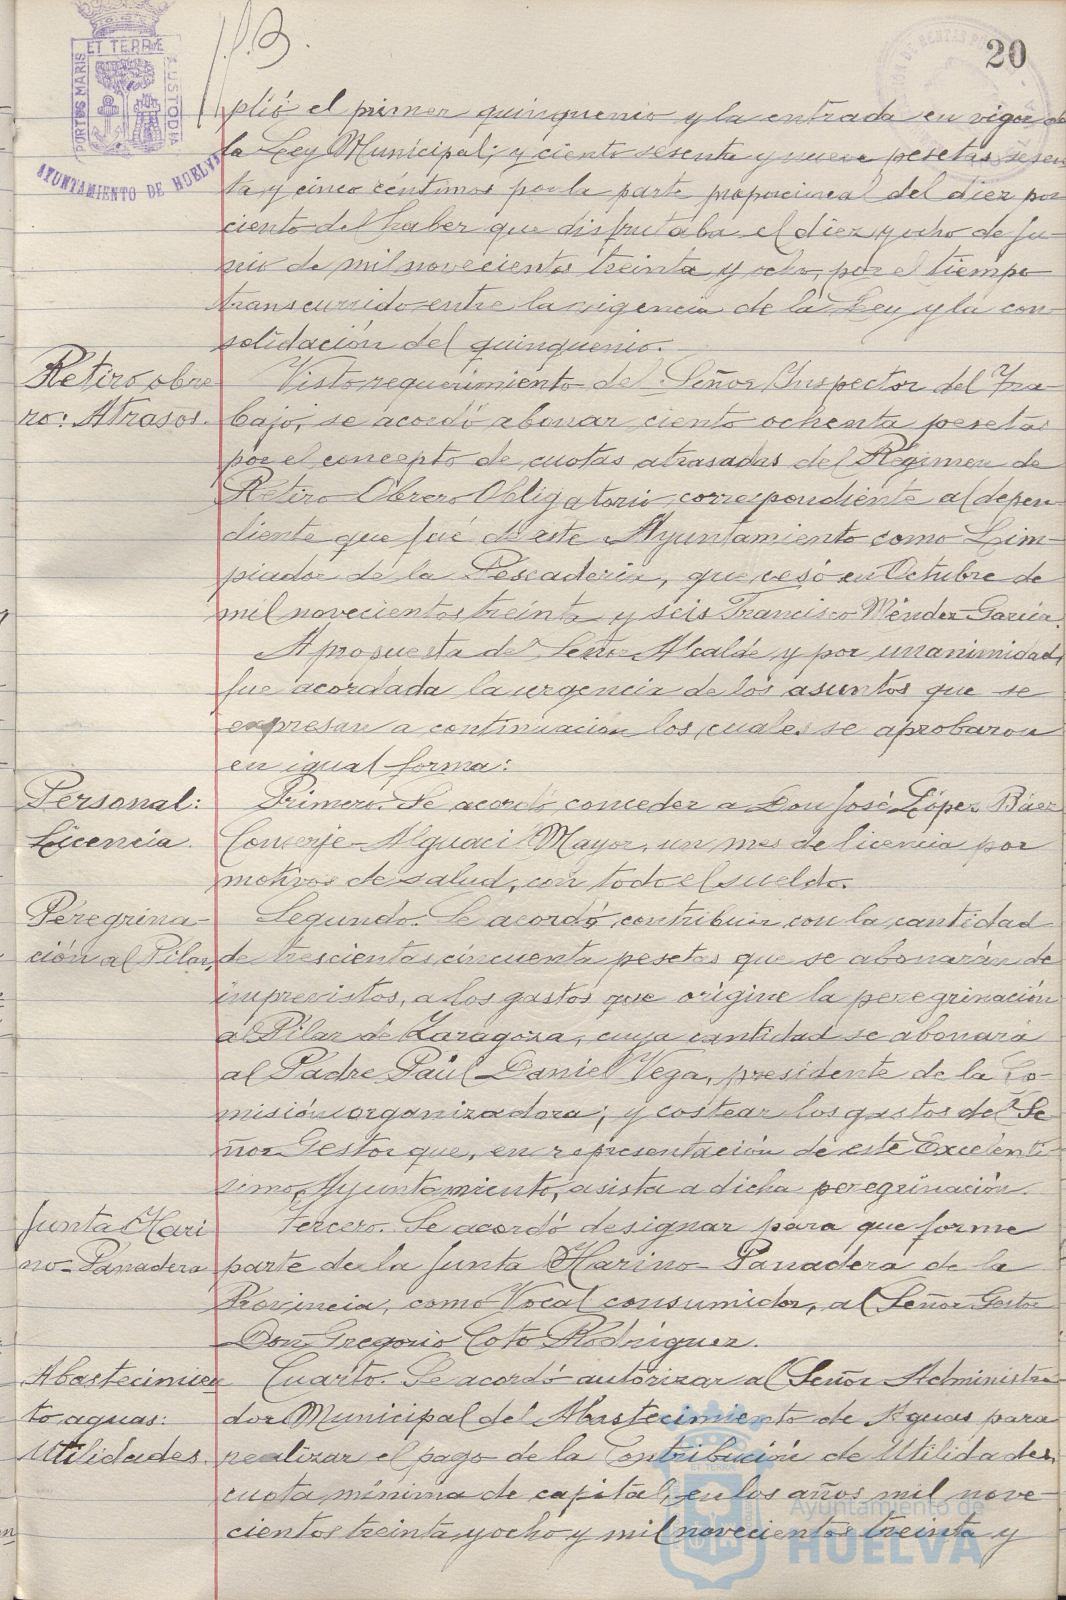 20
PORTUS MARIS ET TERRÆ CUSTODIA
AYUNTAMIENTO DE HUELVA
plió el primer quinquenio y la entrada en vigor de
la Ley Municipal; y ciento sesenta y nueve pesetas sesen-
ta y cinco céntimos por la parte proporcional del diez por
ciento del haber que disfrutaba el diez y ocho de Ju-
nio de mil novecientos treinta y ocho, por el tiempo
transcurrido entre la vigencia de la Ley y la con-
solidación del quinquenio.
Retiro obre-
ro: Atrasos.
Visto requerimiento del Señor Inspector del Tra-
bajo, se acordó abonar ciento ochenta pesetas
por el concepto de cuotas atrasadas del Régimen de
Retiro Obrero Obligatorio, correspondiente al depen-
diente que fué de este Ayuntamiento como Lim-
piador de la Pescadería, que cesó en Octubre de
mil novecientos treinta y seis Francisco Méndez García.
A propuesta del Señor Alcalde y por unanimidad,
fue acordada la urgencia de los asuntos que se
expresan a continuación los cuales se aprobaron
en igual forma:
Personal:
Licencia.
Primero. Se acordó conceder a Don José López Báez
Conserje-Alguacil Mayor, un mes de licencia por
motivos de salud, con todo el sueldo.
Peregrina-
ción al Pilar.
Segundo. Se acordó contribuir con la cantidad
de trescientas cincuenta pesetas que se abonarán de
imprevistos, a los gastos que origine la peregrinación
al Pilar de Zaragoza, cuya cantidad se abonará
al Padre Paúl Daniel Vega, presidente de la Co-
misión organizadora; y costear los gastos del Se-
ñor Gestor que, en representación de este Excelentí-
simo Ayuntamiento, asista a dicha peregrinación.
Junta Hari
no-Panadera
Tercero. Se acordó designar para que forme
parte de la Junta Harino-Panadera de la
Provincia, como Vocal consumidor, al Señor Gestor
Don Gregorio Coto Rodríguez.
Abastecimien
to aguas:
Utilidades.
Cuarto. Se acordó autorizar al Señor Administra
dor Municipal del Abastecimiento de Aguas para
realizar el pago de la Contribución de Utilidades,
cuota mínima de capital, en los años mil nove-
cientos treinta y ocho y mil novecientos treinta y
Ayuntamiento de
HUELVA